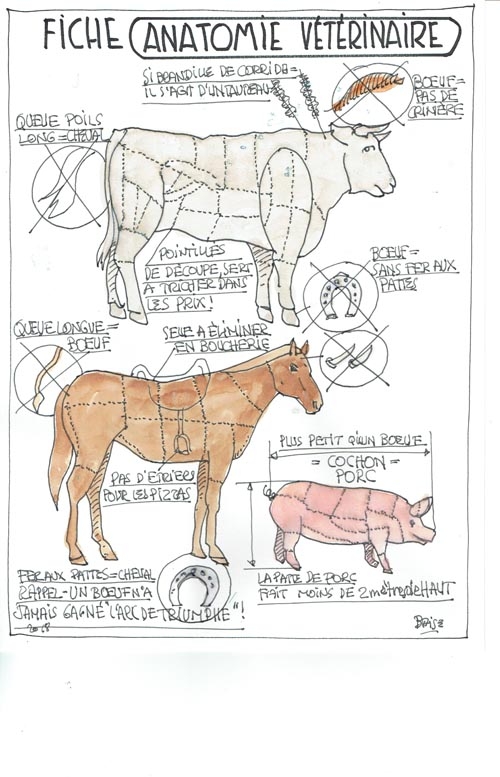 FICHE ANATOMIE VÉTÉRINAIRE
SI BRANDILLE DE CORRIDE =
IL S'AGIT D'UN TAUREAU
BOEUF =
PAS DE
CRINIÈRE
QUEUE POILS
LONG = CHEVAL
POINTILLÉS
DE DÉCOUPE, SERT
A TRICHER DANS
LES PRIX !
BOEUF =
SANS FER AUX
PATTES
QUEUE LONGUE =
BOEUF
SELLE A ÉLIMINER
EN BOUCHERIE
PAS D'ETRIERS
POUR LES PIZZAS
PLUS PETIT QU'UN BOEUF
= COCHON =
PORC
FER AUX PATTES = CHEVAL
RAPPEL - UN BOEUF N'A
JAMAIS GAGNÉ "L'ARC DE TRIUMPHE" !
LA PATE DE PORC
FAIT MOINS DE 2 mètres de HAUT
2018